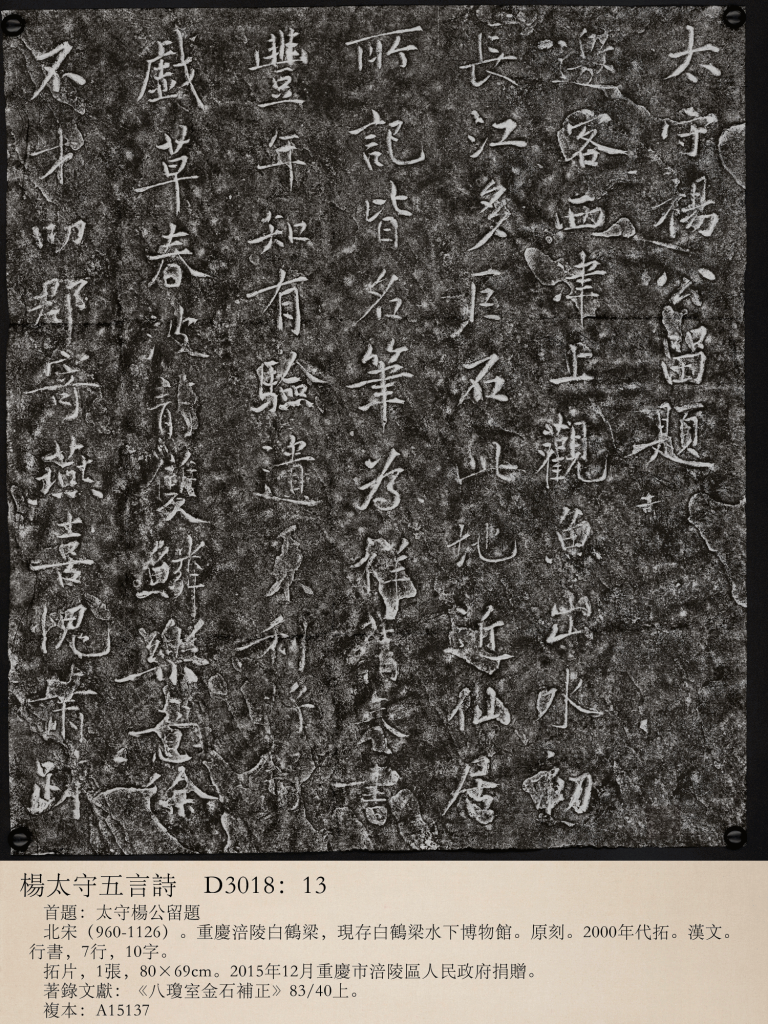 太守楊公留題
邀客西津上觀魚出水初
長江多巨石此地近仙居
所記皆名筆為祥舊奏書
豐年知有驗遺秉利將
戲草春波雙鱗樂意徐
不才叨郡寄燕喜愧蕭疎
楊太守五言詩 D3018：13
首題：太守楊公留題
北宋（960-1126）。重慶涪陵白鶴梁，現存白鶴梁水下博物館。原刻。2000年代拓。漢文。
行書，7行，10字。
拓片，1張，80×69cm。2015年12月重慶市涪陵區人民政府捐贈。
著錄文獻：《八瓊室金石補正》83/40上。
複本：A15137